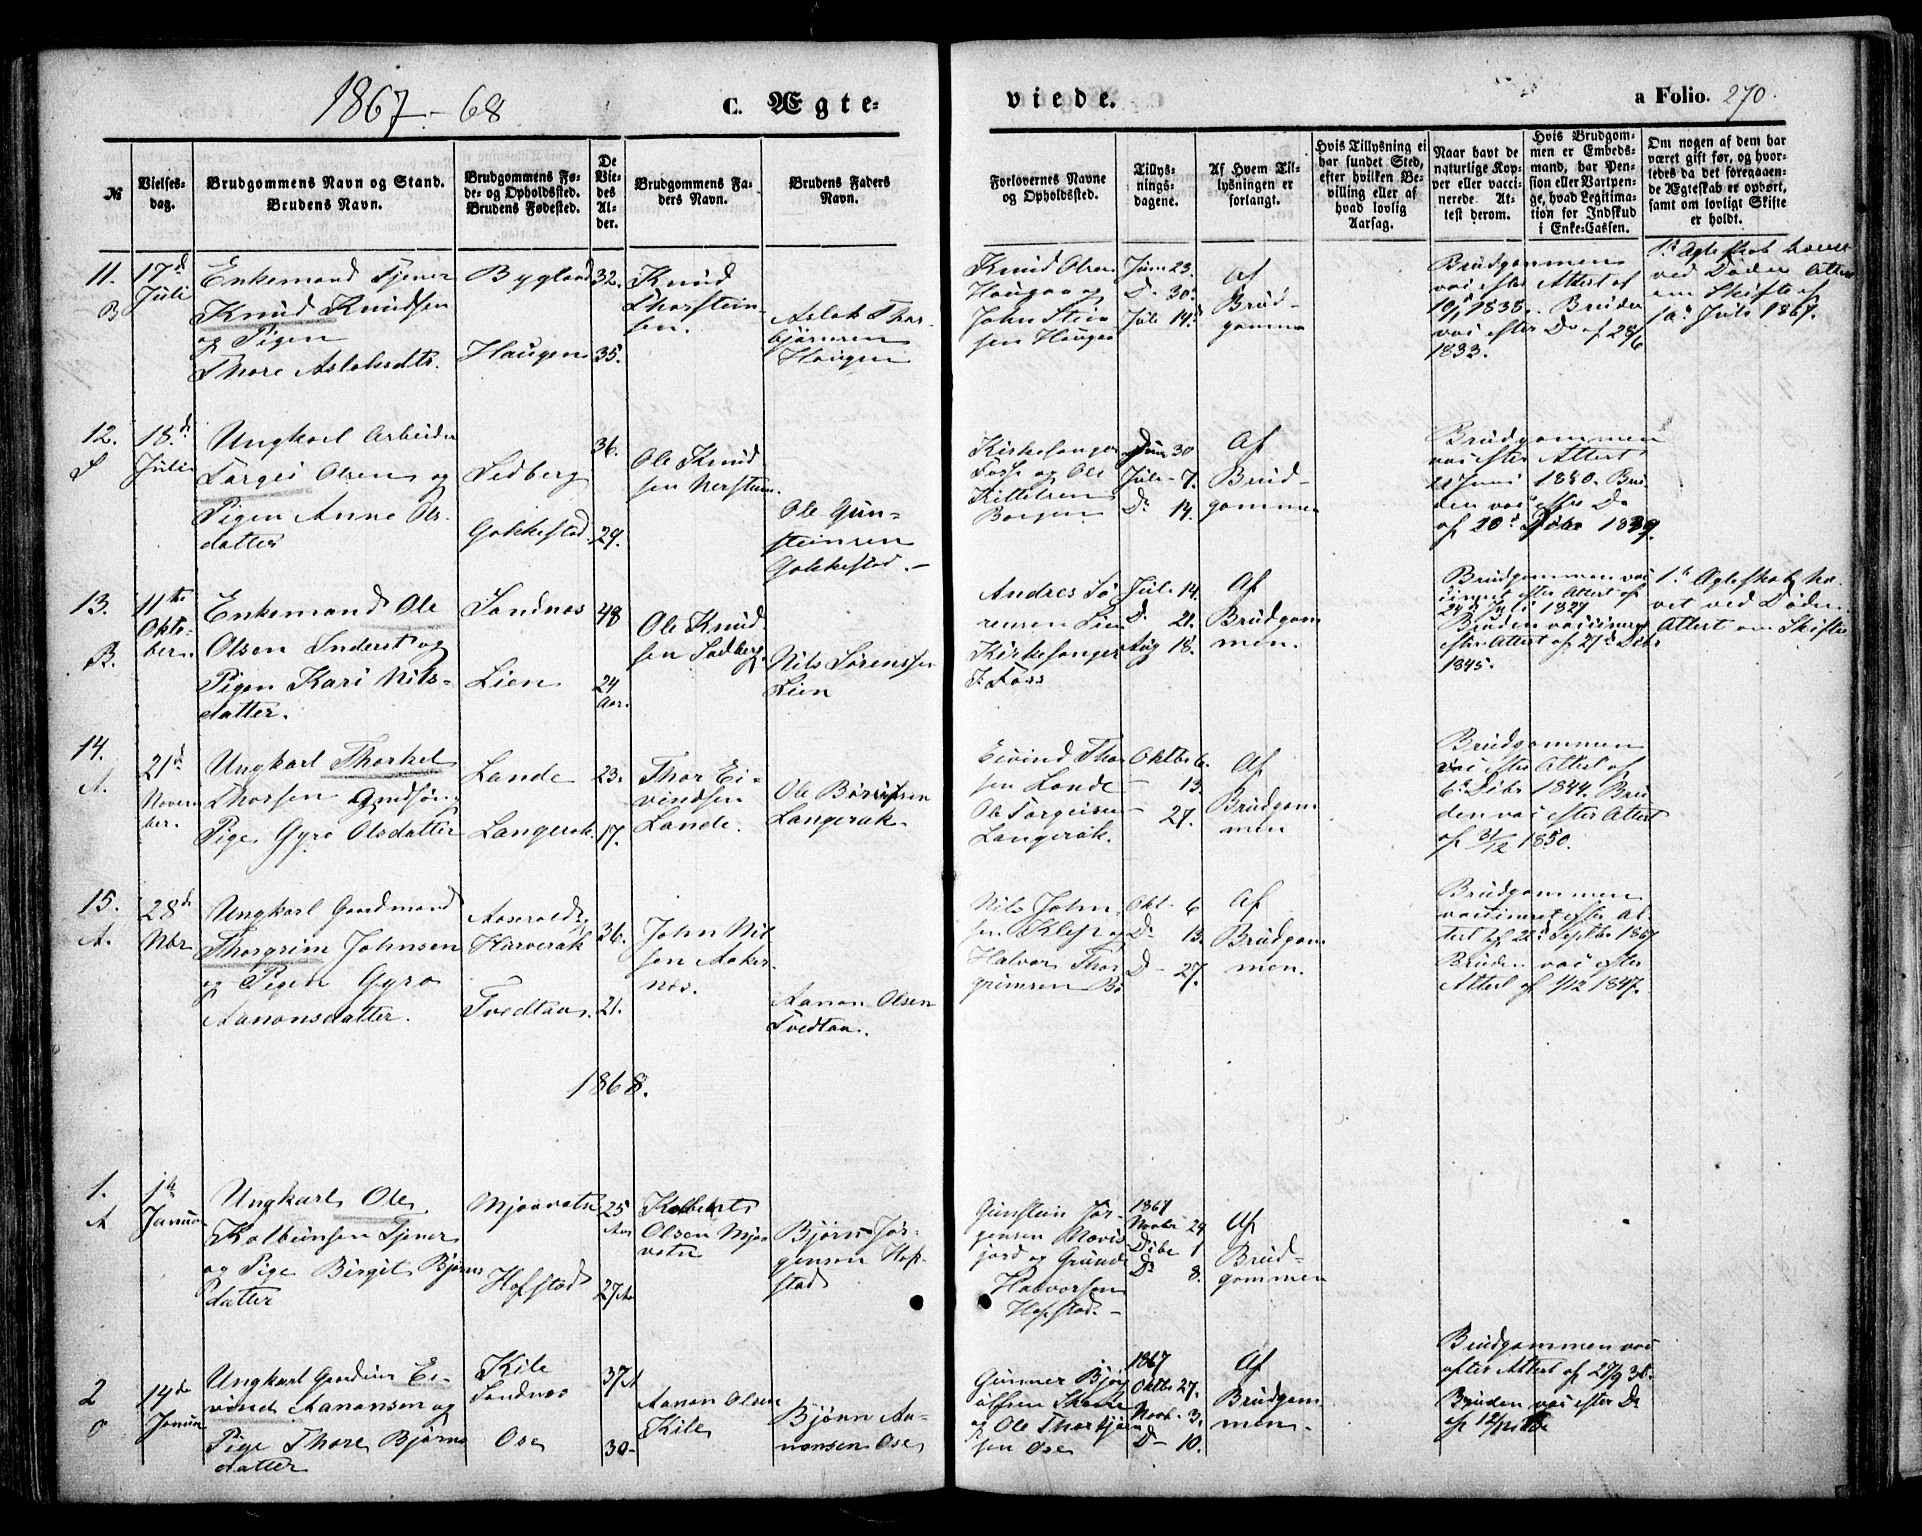 1867-68
C. Ægte-
viede.
a Folio. 270.
№
Vielses-
dag.
Brudgommens Navn og Stand.
Brudens Navn.
Brudgommens Fø-
de- og Opholdssted.
Brudens Fødested.
De
Vie-
des
Al-
der.
Brudgommens Fa-
ders Navn.
Brudens Faders
Navn.
Forlovernes Navne
og Opholdssted.
Tillys-
nings-
dagene.
Af Hvem Til-
lysningen er
forlangt.
Hvis Tillysning ei
har fundet Sted,
efter hvilken Be-
villing eller af
hvad lovlig
Aarsag.
Naar havt de
naturlige Kop-
per eller vacci-
nerede At-
test derom.
Hvis Brudgom-
men er Embeds-
mand, har Pen-
sion eller Vartpen-
ge, hvad Legitima-
tion for Indskud
i Enke-Cassen.
Om nogen af dem har
været gift før, og hvor-
ledes da det foregaaen-
de Ægteskab er ophørt,
samt om lovligt Skifte
er holdt.
11.
B
17d
Juli
Enkemand Tjener
Knud Knudsen
og Pigen
Thore Aslaksdtr.
Bygland
Haugen
32.
35.
Knud
Thorstein-
sen.
Aslak Thor-
bjørnsen
Haugen
Knud Olsen
Haugaa og
John Stein
sen Haugen
Juni 23.
D. 30.
Juli 14.
Af
Brud-
gommen
Brudgommen
vac. efter Attest af
19/1 1838. Bruden
vac. efter Do af 28/6
1833.
1st Ægteskab hævet
ved Døden Attest
om Skifte af
1a Juli 1867.
12.
S
18.d
Juli
Ungkarl Arbeider
Torgei Olsen og
Pigen Anne Ols-
datter
Sedberg
Gakkestad
36.
29.
Ole Knud
sen Nerstun
Ole Gun-
steinsen
Gakkestad.-
Kirkesanger
Foss og Ole
Kittelsen
Borgen
Juni 30
Juli - 7.
D. 14.
Af
Brud-
gommen
Brudgommen
vac. efter Attest
21 Juni 1840. Bru-
den vac. efter Do
af 20d Debr 1839.
13.
B.
11te
Okto-
bern
Enkemand Ole
Olsen Inderst og
Pigen Kari Nils-
datter.
Sandnes
Lien
48
24
Aar.
Ole Knud-
sen Sedberg.
Nils Sørenssen
Lien
Andres Sø-
rensen Lien
Kirkesanger
F. Foss
Juli 14.
D. 21.
Aug 18.
Af
Brudgom
men.
Brudgommen vac-
cineret efter Attest af
24d Juli 1827
Bruden vaccineret
efter Attest af 27d Debr
1845.
1st Ægteskab hæ-
vet ved Døden.
Attest om Skifte
14.
A.
21d
Novem
ber.
Ungkarl Thorkel
Thorsen Grdsøn,
Pige Gyro Olsdatter
Lande
Langerak.
23.
17.
Thor Ei-
vindsen
Lande.
Ole
Langerak.
Eivind Thor
sen Lande
Ole Torgeisen
Langerak.
Oktbr 6.
- 13.
- 27.
Af
Brudgom
men
Brudgommen
vac. efter Attest af
6d Debr 1844. Bru-
den vac. efter Attest
af 31/12 1850.
15.
A.
28d
Nbr
Ungkarl Gaardmand
Thorgrim Johnsen
og Pigen Gyro
Aanonsdatter.
Aaseral
Harverak
Tvedtaa
36.
21.
John Nil
sen Aaker-
nes.
Aanon Olsen
Tvedtaa.
Nils John-
sen Klep og
Halvor Thor
grimsen Bø
Okt. 6
D. 13.
D - 27.
Af
Brudgom
men.
Brudgommen
vaccineret efter At-
test af 22d Septbr 1867
Bruden vac. efter
Attest af 1/12 1847.
1868.
1.
A
1ste
Januar
Ungkarl Ole
Kolbeinsen Tjener
og Pige Birgit Bjørns
datter
Mjaavatn
Hofstad
25
Aar
27 Aar
Kolbein
Olsen Mjaa
vatn
Bjørn Jør-
gensen Hof-
stad
Gunstein Jør-
gensen
og Gunde
Halvorsen
Hofstad.-
1867
Novbr 24
Debr 1
D. 8.
Af
Brud-
gommen
2
O
14de
Januar
Ungkarl Gaardm. Ei-
vind Aanonsen og
Pige Thore Bjørns
datter
Kile
Sandnes
Ose
37 A
30-
Aanon Olsen
Kile
Bjørn Aa-
nonsen Ose
Gunner Bjørg
ulfsen
og Ole Thorbjørn
sen Ose
1867
Oktbr 27.
Novb. 3.
D - 10.
Af
Brudgom
men.
Brudgommen vac.
efter Attest af 27/9 38.
Bruden vac. efter Do
af